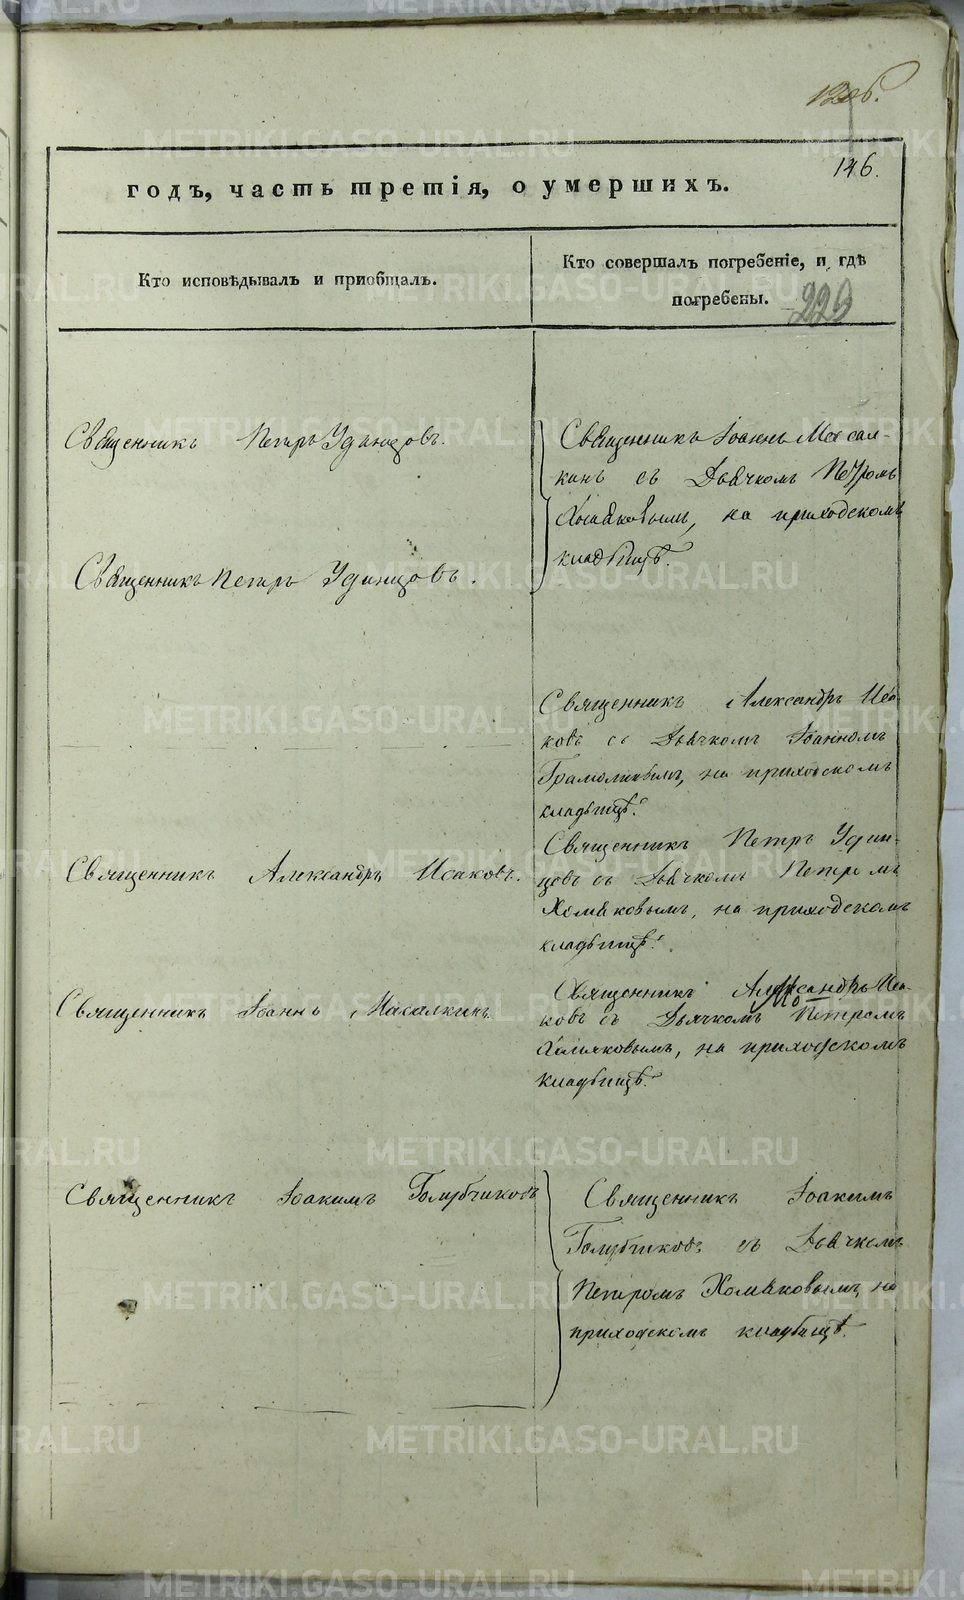 146.
годъ, часть третія, о умершихъ.
Кто исповѣдывалъ и пріобщалъ.
Кто совершалъ погребеніе, и гдѣ
погребены.
229
Священникъ Петръ Удинцовъ.
Священникъ Іоаннъ Масал-
кинъ съ Дьячкомъ Петромъ
Хомяковымъ, на приходскомъ
кладбищѣ.
Священникъ Петръ Удинцовъ.
Священникъ Александръ Иса-
ковъ съ Дьячкомъ Іоанномъ
на приходскомъ
кладбищѣ.
Священникъ Александръ Исаковъ.
Священникъ Петръ Удин-
цовъ съ Дьячкомъ Петромъ
Хомяковымъ, на приходскомъ
кладбищѣ.
Священникъ Іоаннъ Масалкинъ
Священникъ Александръ Иса-
ковъ съ Дьячкомъ Петромъ
Хомяковымъ, на приходскомъ
кладбищѣ.
Священникъ Іоакимъ Голубчиковъ
Священникъ Іоакимъ
Голубчиковъ съ Дьячкомъ
Петромъ Хомяковымъ, на
приходскомъ кладбищѣ.
METRIKI.GASO-URAL.RU